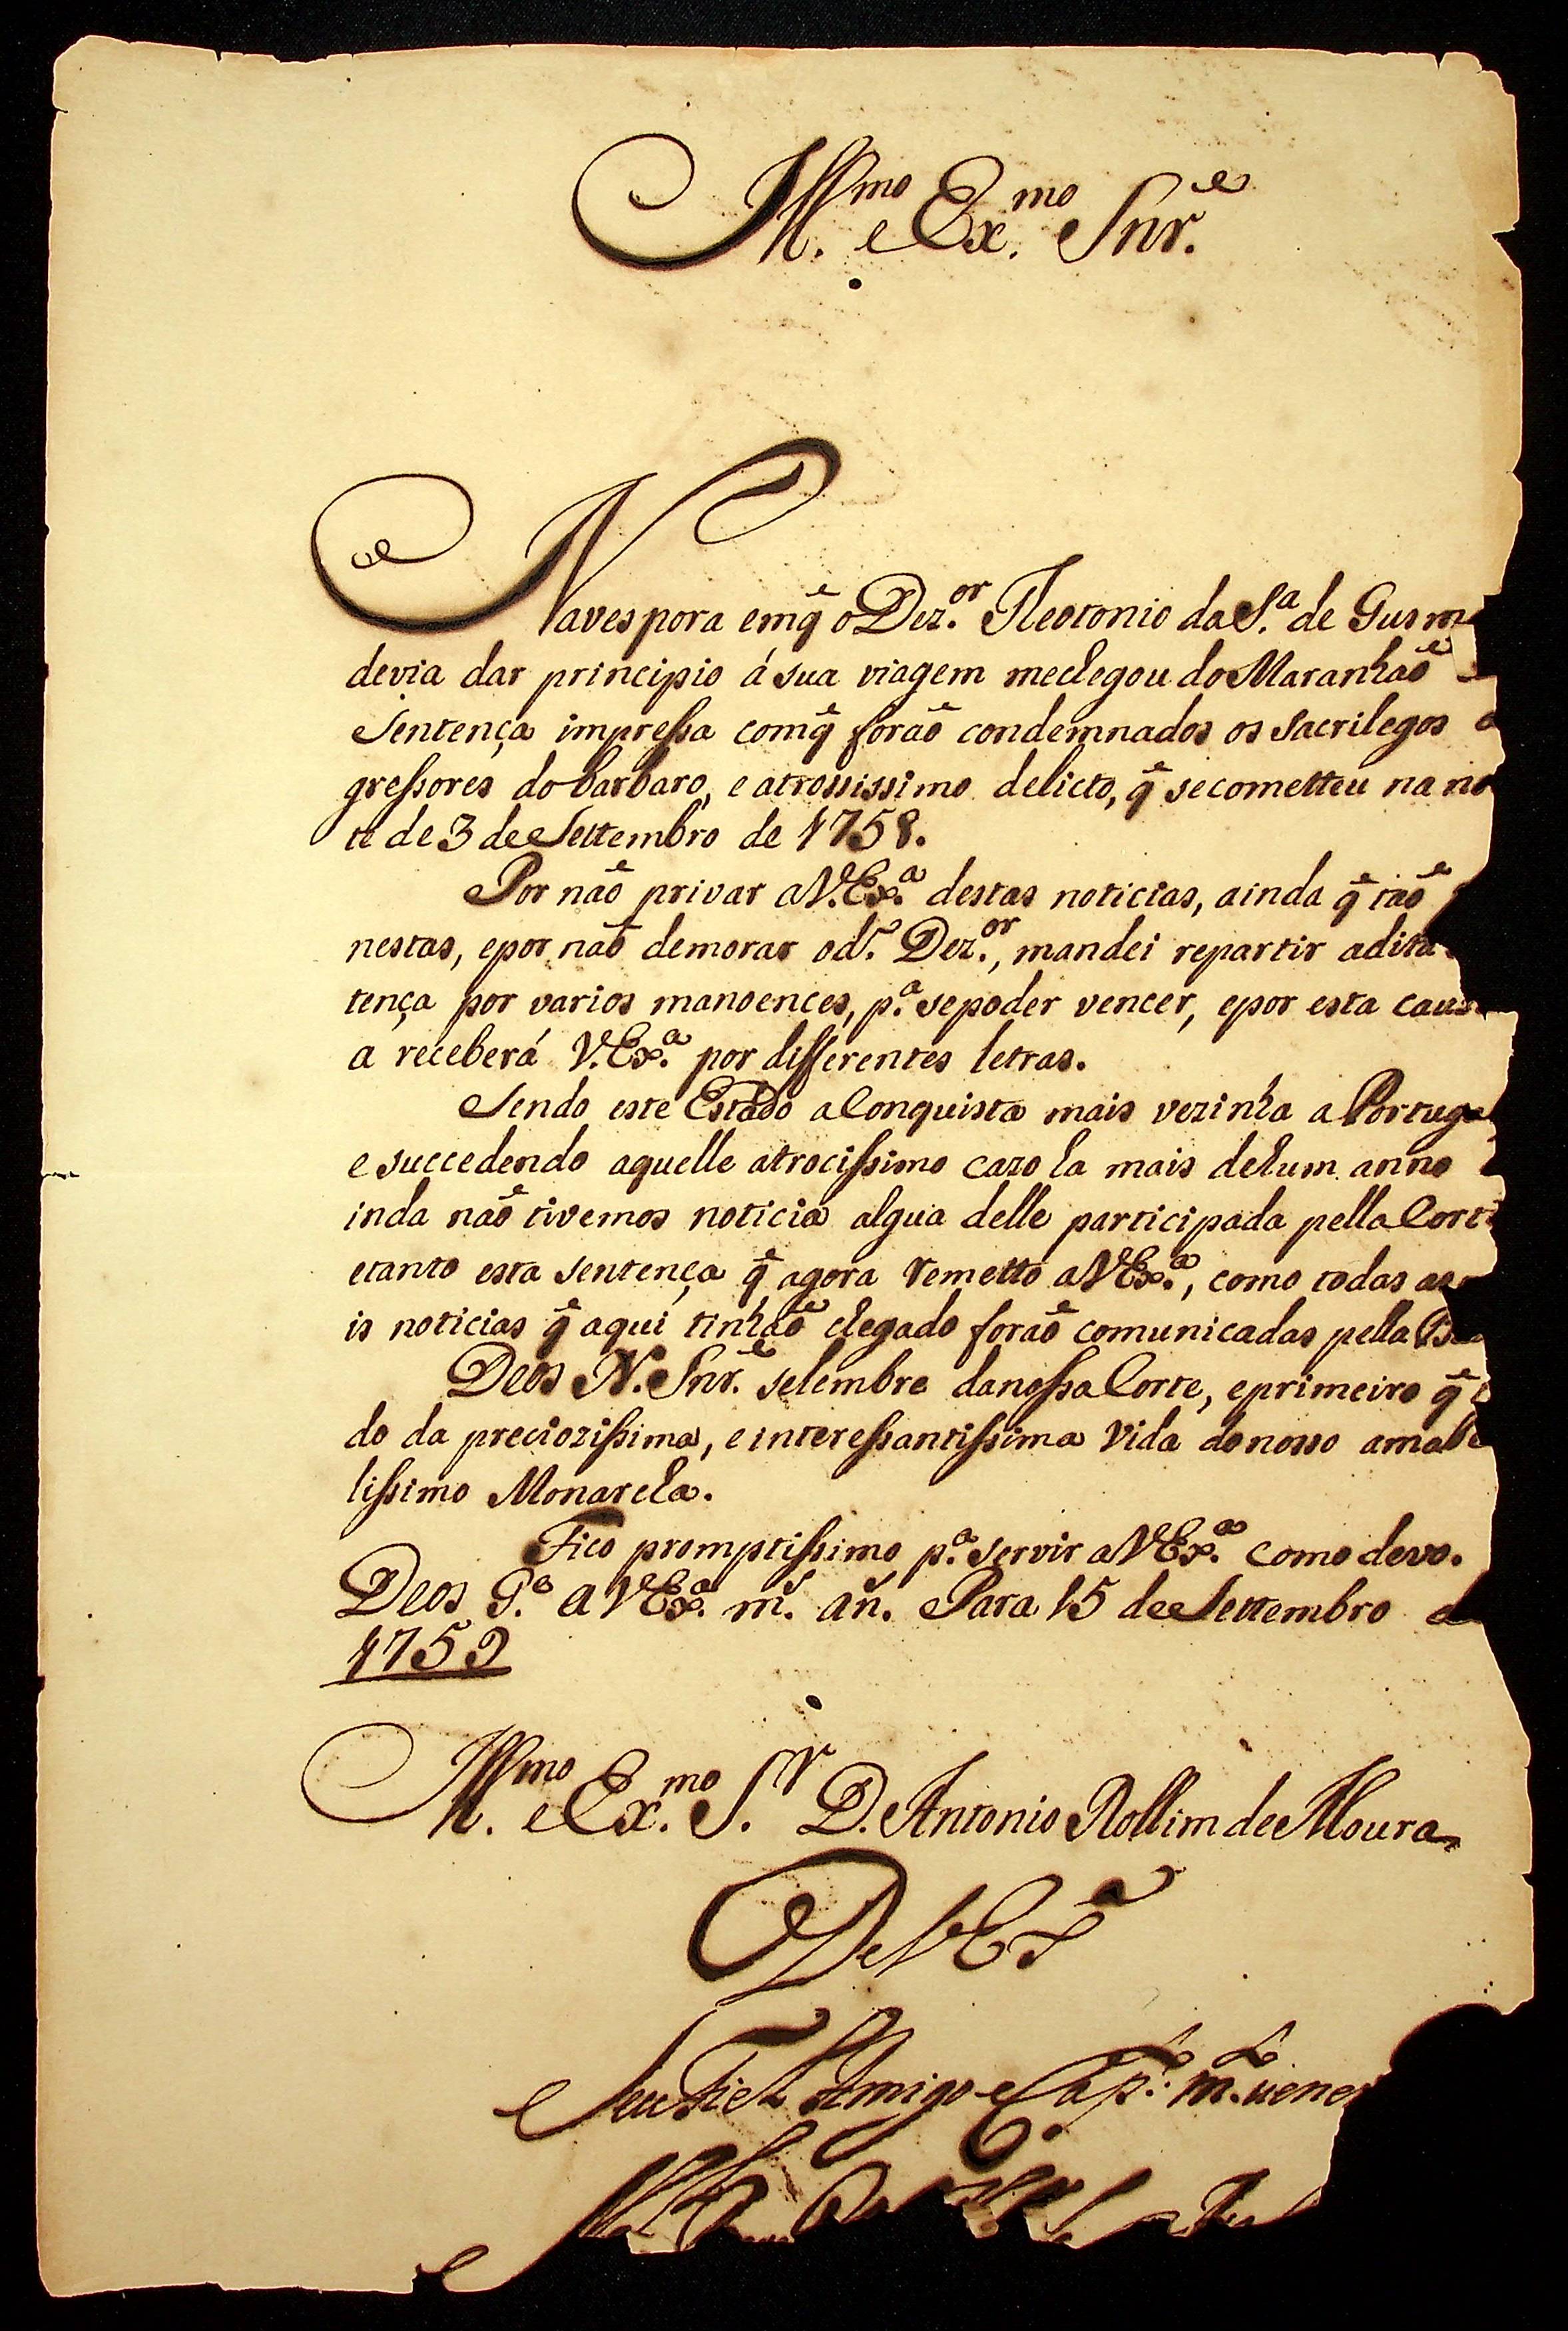 Ill.mo e Ex.mo Snr.e
Navespora emq̃ o Dez.or Theotonio da S.a de Gusm
devia dar principio á sua viagem mechegou do Maranhaõ
Sentença impressa comq̃ foraõ condemnados os Sacrilegos
gressores do barbaro, e atrossissimo delicto, q̃ secometteu na no
te de 3 de Settembro de 1758.
Por naõ privar aV.Ex.a destas noticias, ainda q̃ taõ
nestas, epor naõ demorar od.o Dez.or, mandei repartir adita
tença por varios manoences, p.a sepoder vencer, epor esta caus
a receberá V.Ex.a por differentes letras.
Sendo este Estado aConquista mais vezinha a Portuga
e succedendo aquelle atrocissimo cazo ha mais dehum anno
inda naõ tivemos noticia algua delle participada pellaCort
etanto esta sentença q̃ agora remetto aVEx.a, como todas as
is noticias q̃ aqui tinhaõ chegado foraõ comunicadas pella
Deos N. Snr.e selembre danossaCorte, eprimeiro q̃
do da preciozissima, e interessantissima Vida donosso amabe
lissimo Monarcha.
Fico promptissimo p.a servir aVEx.a como devo.
Deos G.e a VEx.a m.s an.s Para 15 de Settembro
1759
Ill.mo e Ex.mo S.r D. Antonio Rollim de Moura
De V Ex.a
Seu Fiel Amigo e Cap.to m.to uene